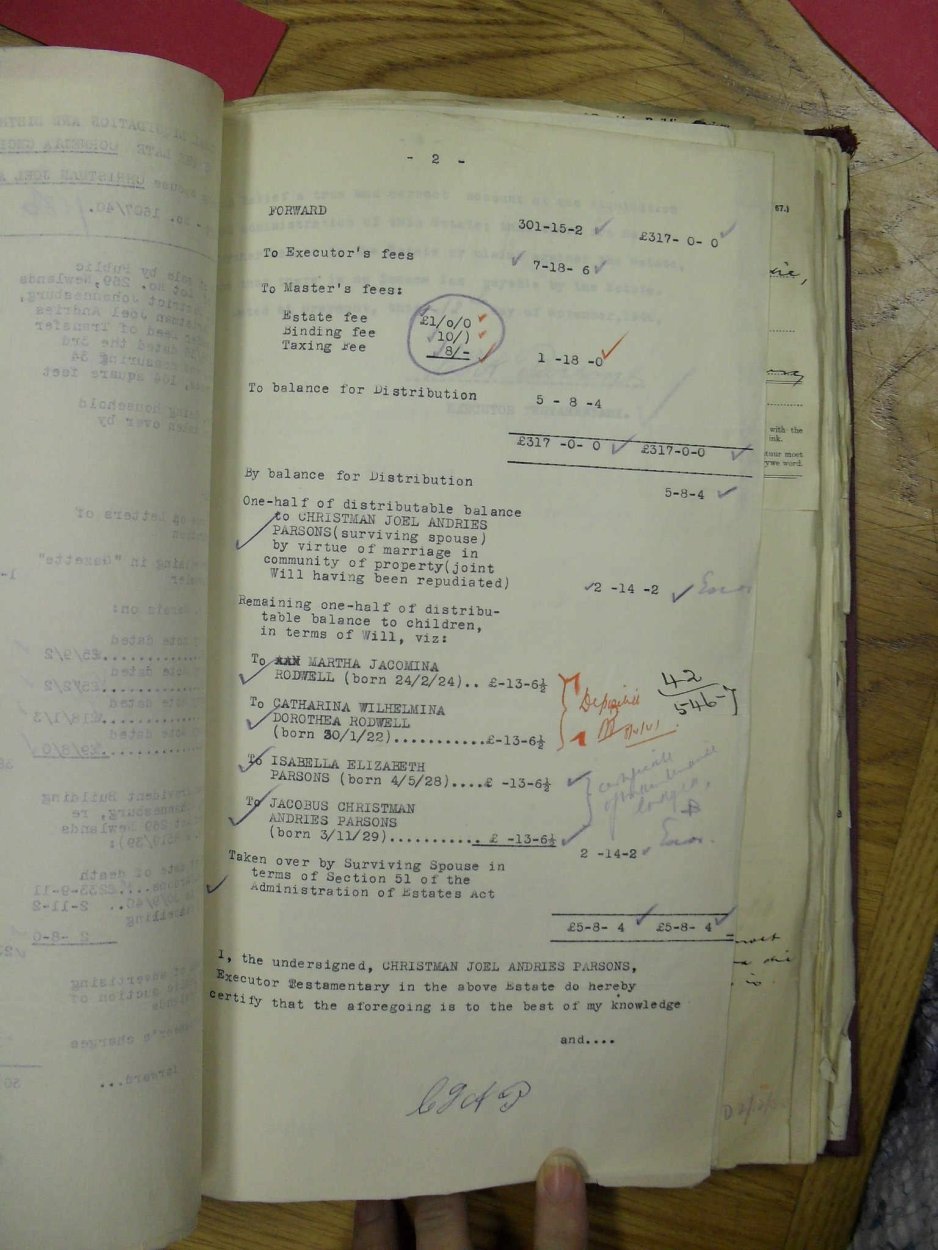 - 2 -
FORWARD 301-15-2 £317- 0- 0
To Executor's fees 7-18- 6
To Master's fees:
Estate fee £1/0/0
Binding fee 10/)
Taxing Fee 8/- 1 -18 -0
To balance for Distribution 5 - 8 -4
£317 -0- 0 £317-0-0
By balance for Distribution 5-8-4
One-half of distributable balance
to CHRISTMAN JOEL ANDRIES
PARSONS(surviving spouse)
by virtue of marriage in
community of property(joint
Will having been repudiated) 2 -14 -2
Remaining one-half of distribu-
table balance to children,
in terms of Will, viz:
To MARTHA JACOMINA
RODWELL (born 24/2/24).. £-13-6½
To CATHARINA WILHELMINA
DOROTHEA RODWELL
(born 30/1/22)...........£-13-6½
To ISABELLA ELIZABETH
PARSONS (born 4/5/28)....£ -13-6½
To JACOBUS CHRISTMAN
ANDRIES PARSONS
(born 3/11/29)........... £ -13-6½
2 -14-2
42
546
Taken over by Surviving Spouse in
terms of Section 51 of the
Administration of Estates Act
£5-8- 4 £5-8- 4
I, the undersigned, CHRISTMAN JOEL ANDRIES PARSONS,
Executor Testamentary in the above Estate do hereby
certify that the aforegoing is to the best of my knowledge
and....
CJAP
67.)
with the
ink.